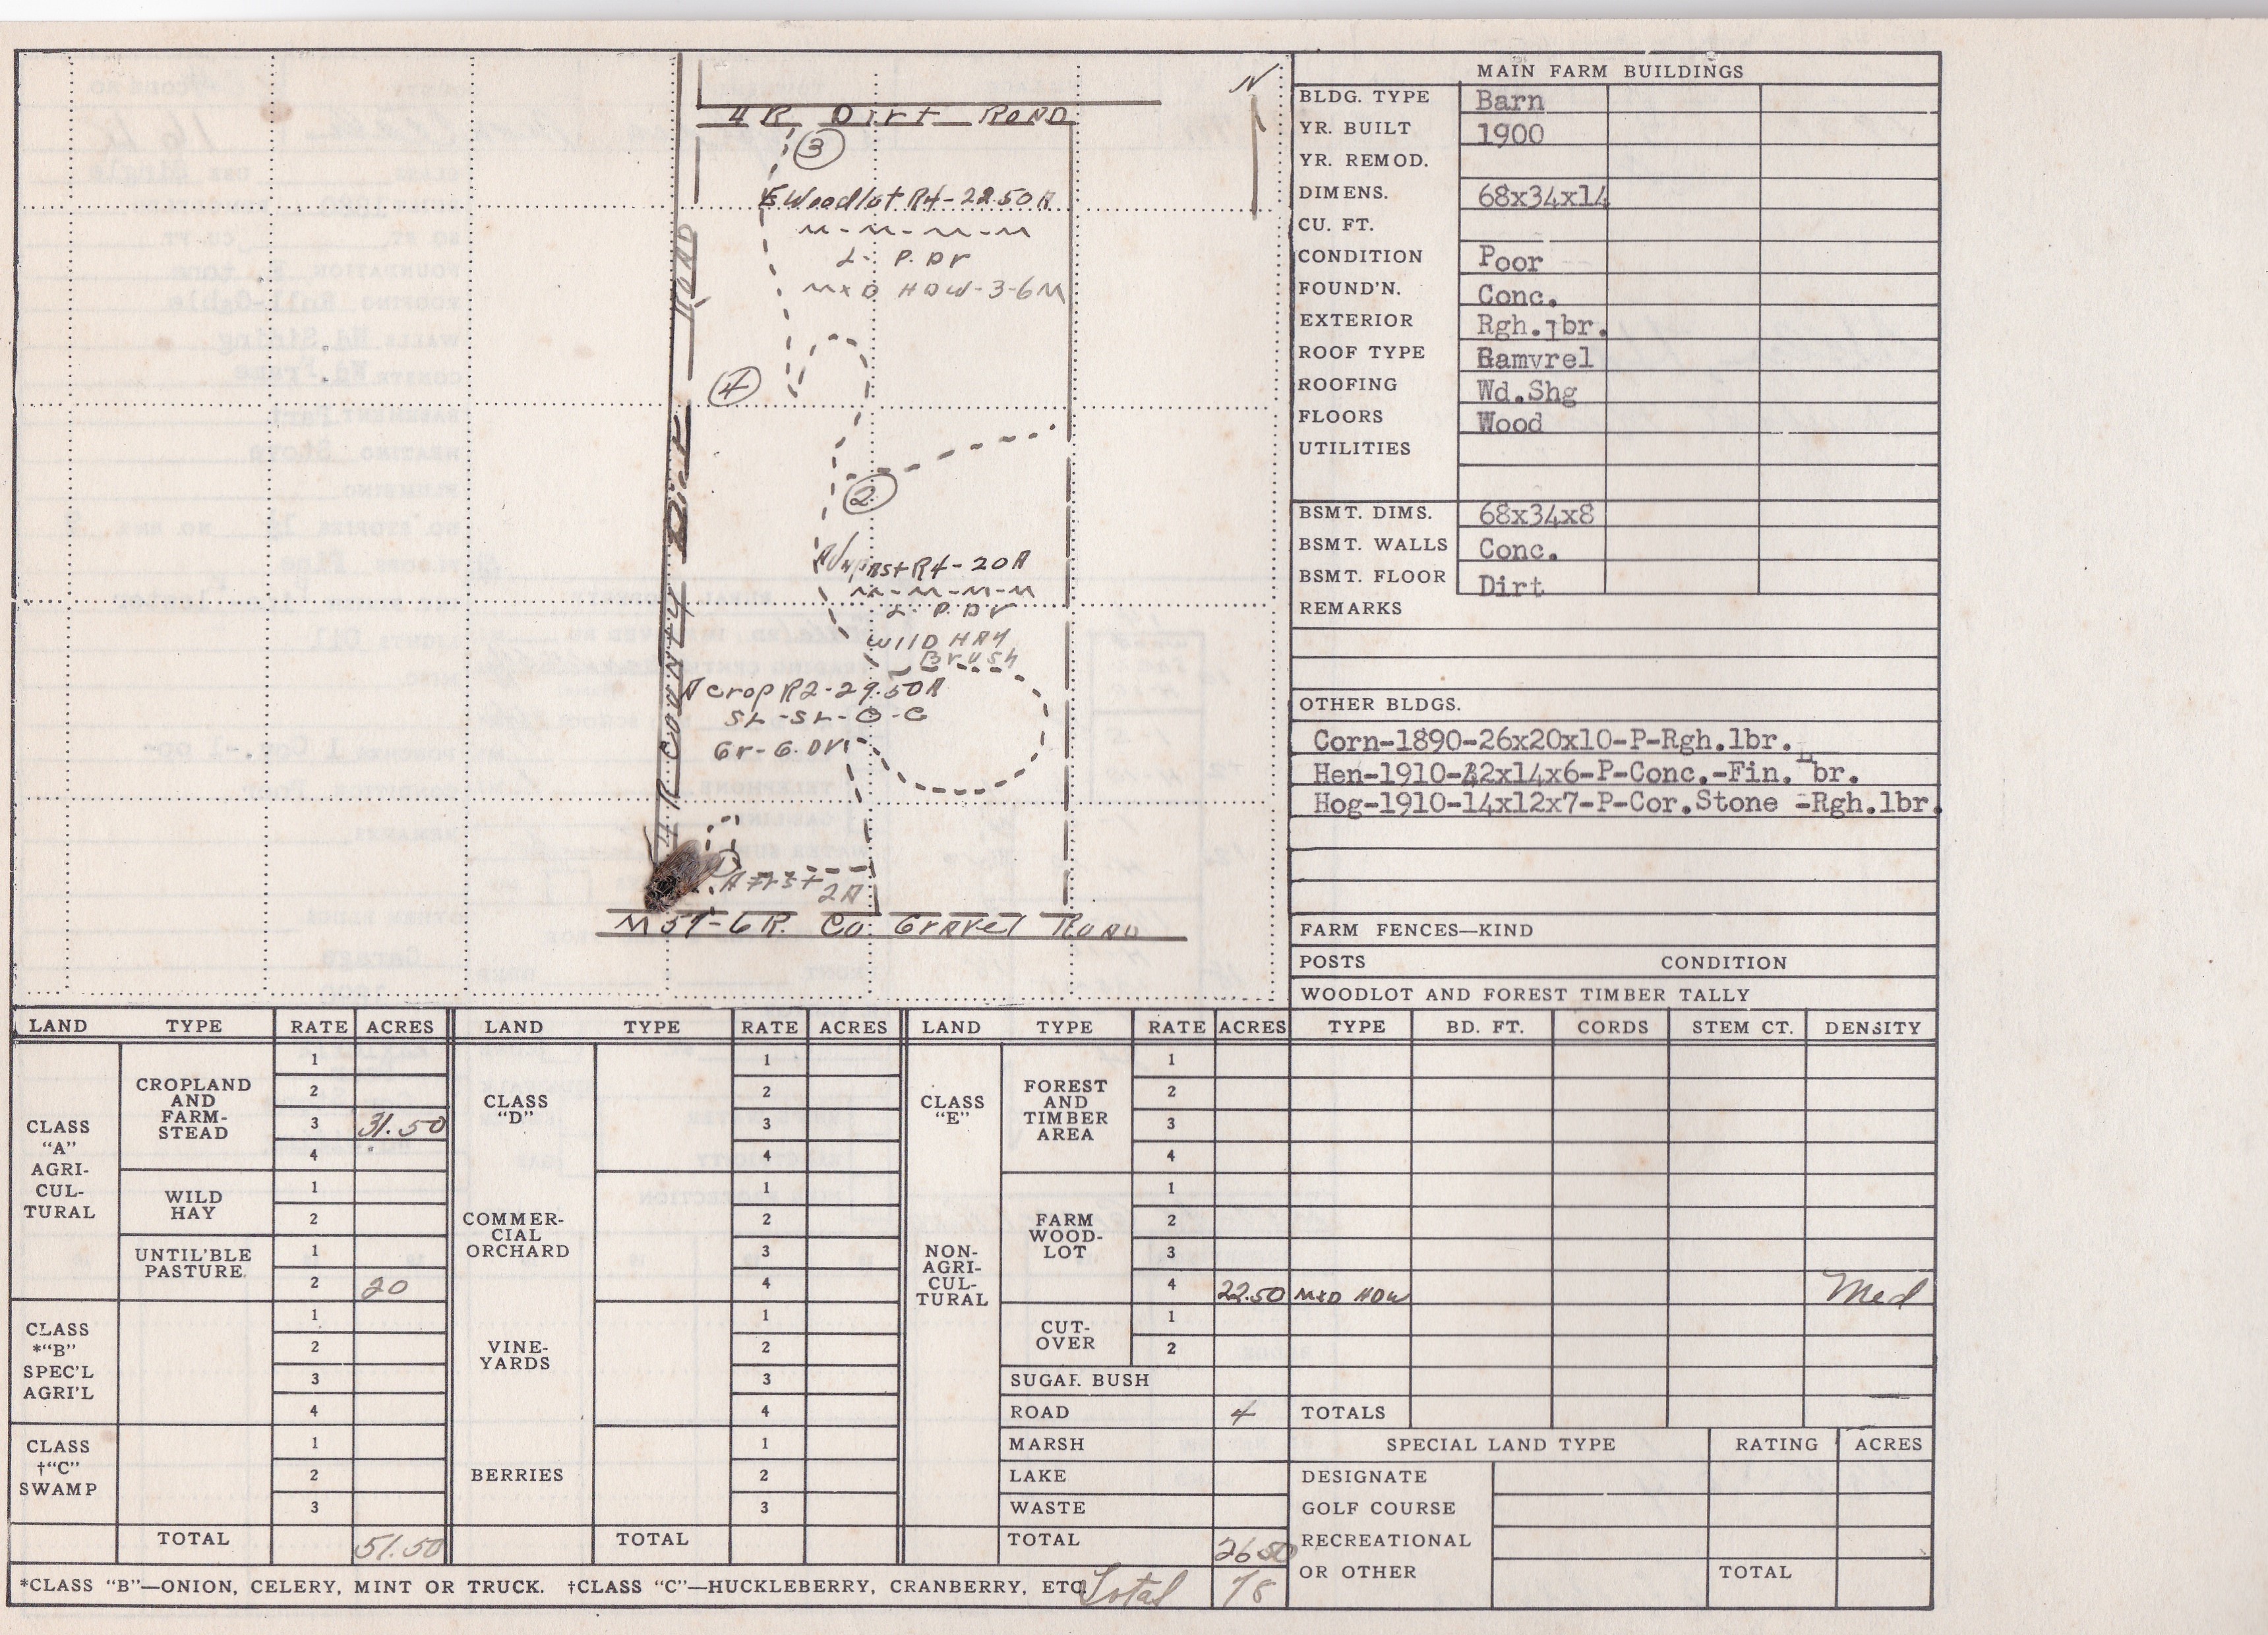 N
4 R Dirt ROAD
3
E Woodlot R4-22.50A
M-M-M-M
L-P.Dr
MXD HDW-3-6M
4
2
Unpast R4-20A
M-M-M-M
L-P.Dr
WILD HAY
Brush
A crop R2-29.50A
SL-SL-O-C
Gr-G.Dr
4 R COUNTY Dirt ROAD
A Frst
2A
M 57-6R. Co. GrAvel ROAD
MAIN FARM BUILDINGS
BLDG. TYPE Barn
YR. BUILT 1900
YR. REMOD.
DIMENS. 68x34x14
CU. FT.
CONDITION Poor
FOUND'N. Conc.
EXTERIOR Rgh.lbr.
ROOF TYPE Gamvrel
ROOFING Wd.Shg
FLOORS Wood
UTILITIES
BSMT. DIMS. 68x34x8
BSMT. WALLS Conc.
BSMT. FLOOR Dirt
REMARKS
OTHER BLDGS.
Corn-1890-26x20x10-P-Rgh.lbr.
Hen-1910-42x14x6-P-Conc.-Fin. Lbr.
Hog-1910-14x12x7-P-Cor.Stone -Rgh.lbr.
FARM FENCES—KIND
POSTS CONDITION
WOODLOT AND FOREST TIMBER TALLY
LAND TYPE RATE ACRES LAND TYPE RATE ACRES LAND TYPE RATE ACRES TYPE BD. FT. CORDS STEM CT. DENSITY
CLASS
"A"
AGRI-
CUL-
TURAL
CROPLAND
AND
FARM-
STEAD
1
2
3 31.50
4
WILD
HAY
1
2
UNTIL'BLE
PASTURE
1
2 20
CLASS
*"B"
SPEC'L
AGRI'L
1
2
3
4
CLASS
†"C"
SWAMP
1
2
3
TOTAL 51.50
CLASS
"D"
COMMER-
CIAL
ORCHARD
1
2
3
4
1
2
3
4
VINE-
YARDS
1
2
3
4
BERRIES
1
2
3
TOTAL
CLASS
"E"
NON-
AGRI-
CUL-
TURAL
FOREST
AND
TIMBER
AREA
1
2
3
4
FARM
WOOD-
LOT
1
2
3
4 22.50 MXD HDW Med
CUT-
OVER
1
2
SUGAR BUSH
ROAD 4 TOTALS
MARSH
LAKE
WASTE
TOTAL 26.50
SPECIAL LAND TYPE RATING ACRES
DESIGNATE
GOLF COURSE
RECREATIONAL
OR OTHER TOTAL
*CLASS "B"—ONION, CELERY, MINT OR TRUCK. †CLASS "C"—HUCKLEBERRY, CRANBERRY, ETC. Total 78